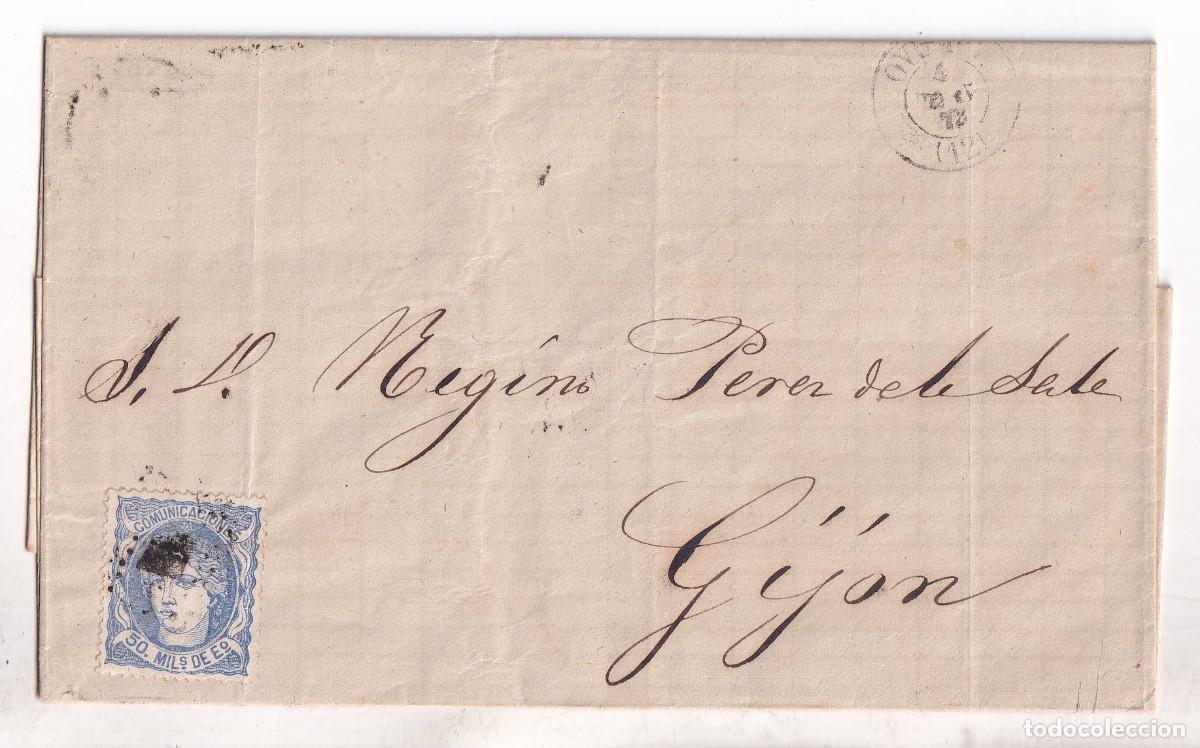 OVIEDO
(12)
S. D. Regino Perez de la Sala
Gijon
COMUNICACIONES
50. MILS DE Eo.
todocoleccion